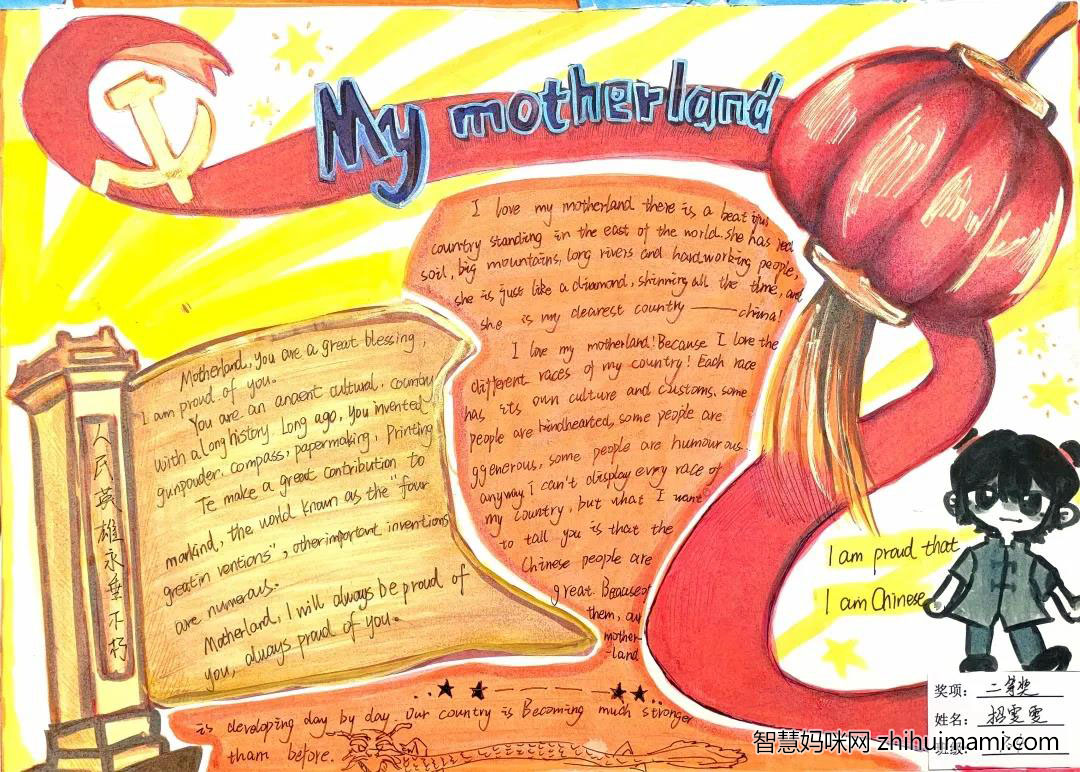 My motherland
I love my motherland there is a beatiful
country standing in the east of the world. She has red
soil, big mountains, long rivers and hardworking people,
she is just like a diamond, shinning all the time, and
she is my dearest country ——china!
I love my motherland! Because I love the
different races of my country! Each race
has its own culture and customs, some
people are kindhearted, some people are
ggenerous, some people are humourous.
anyway i can't display evry race of
my country, but what I want
to tall you is that the
Chinese people are
great. Because of
them, our
mother-
-land
is developing day by day. Our country is Becoming much stronger
tham before.
Motherland, you are a great blessing,
I am proud of you.
You are an ancient cultural, country
with a long history. Long ago, you invented
gunpouder, compass, papermaking, Printing
Te make a great contribution to
mankind, the world known as the "four
greatin ventions", other important inventions
are numerous.
Motherland, I will always be proud of
you, always proud of you.
人民英雄永垂不朽
I am proud that
I am Chinese
奖项: 二等奖
姓名: 招雯雯
班级:
智慧妈咪网 zhihuimami.com